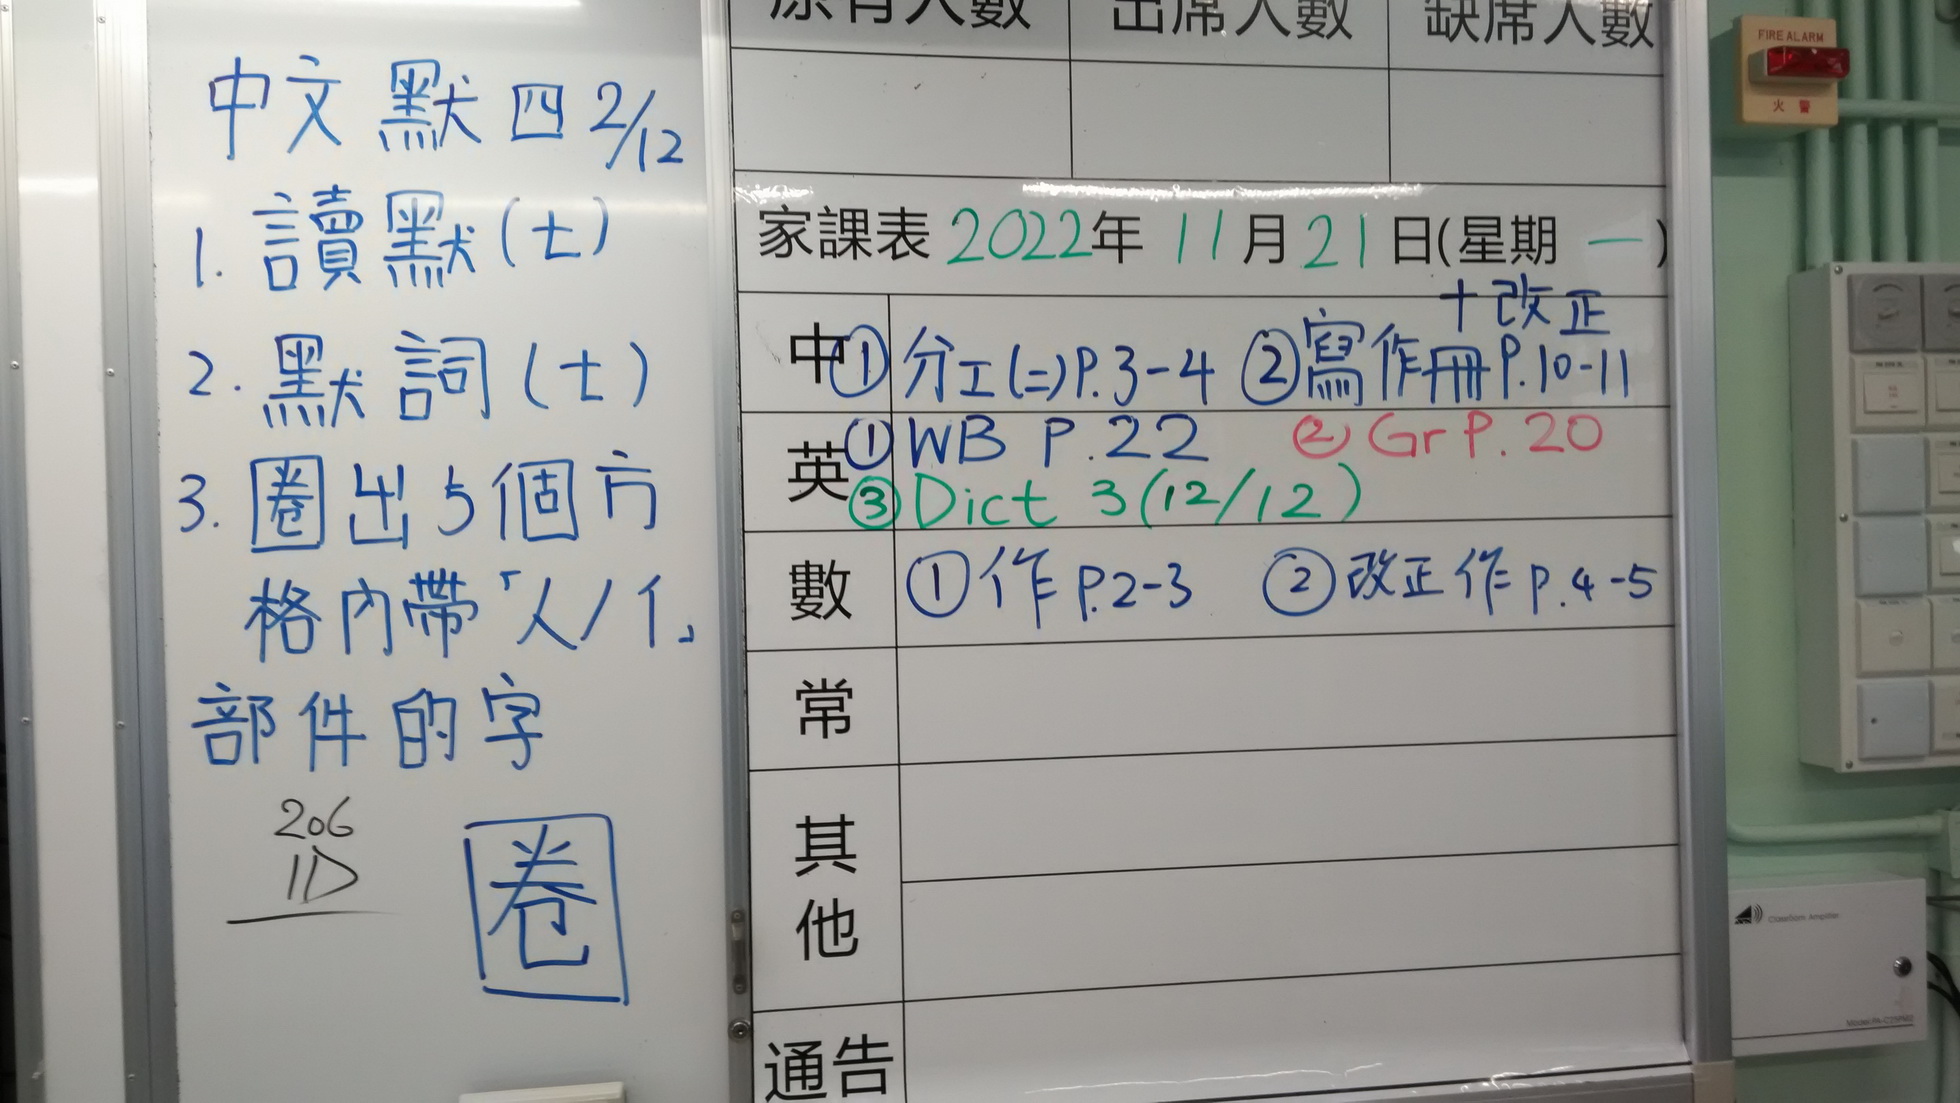 中文默四2/12
1. 讀默(七)
2. 默詞(七)
3. 圈出5個方
格內帶「人/亻」
部件的字
206
1D
圈
原有人數 出席人數 缺席人數
家課表 2022年 11月21日(星期一)
+改正
中 ①分工(二)P.3-4 ②寫作冊P.10-11
英 ①WB P.22 ②Gr P.20
③Dict 3(12/12)
數 ①作P.2-3 ②改正作P.4-5
常
其他
通告
FIRE ALARM
火警
Classroom Amplifier